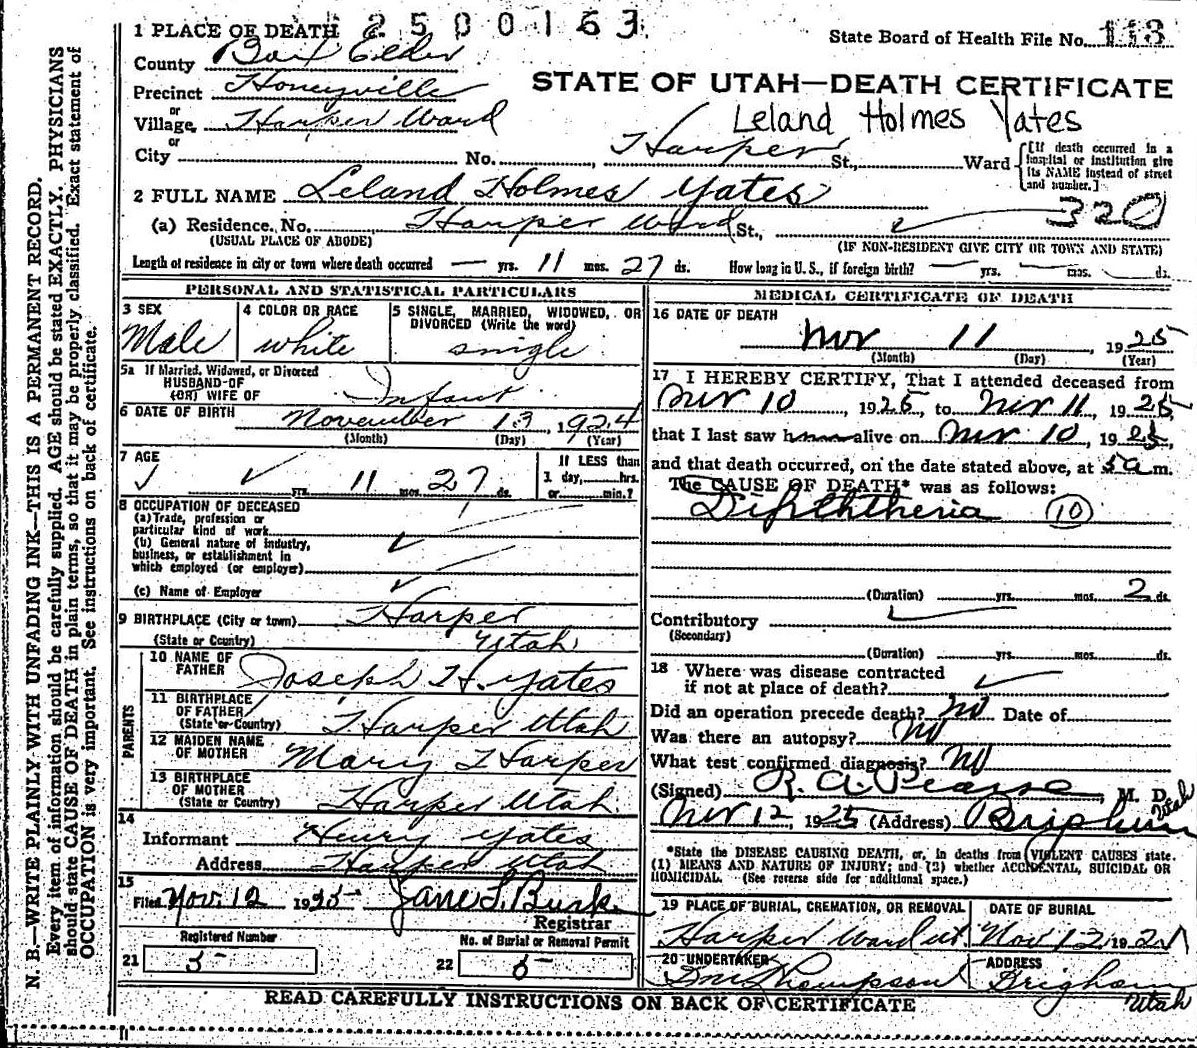 2500163
1 PLACE OF DEATH
State Board of Health File No. 113
County Box Elder
STATE OF UTAH—DEATH CERTIFICATE
Precinct Honeyville
or
Village Harper Ward
Leland Holmes Yates
or
City No. Harper St., Ward
[If death occurred in a hospital or institution give its NAME instead of street and number.]
2 FULL NAME Leland Holmes Yates
320
(a) Residence. No. Harper Ward St.,
(USUAL PLACE OF ABODE) (IF NON-RESIDENT GIVE CITY OR TOWN AND STATE)
Length of residence in city or town where death occurred — yrs. 11 mos. 27 ds. How long in U. S., if foreign birth? — yrs. — mos. ds.
PERSONAL AND STATISTICAL PARTICULARS
3 SEX
Male
4 COLOR OR RACE
white
5 SINGLE, MARRIED, WIDOWED, OR
DIVORCED (Write the word)
single
5a If Married, Widowed, or Divorced
HUSBAND OF
(OR) WIFE OF Infant
6 DATE OF BIRTH November 13, 1924
(Month) (Day) (Year)
7 AGE
yrs. 11 mos. 27 ds.
If LESS than
1 day, hrs.
or min.?
8 OCCUPATION OF DECEASED
(a) Trade, profession or
particular kind of work
(b) General nature of industry,
business, or establishment in
which employed (or employer)
(c) Name of Employer
9 BIRTHPLACE (City or town) Harper
(State or Country) Utah
PARENTS
10 NAME OF
FATHER Joseph H. Yates
11 BIRTHPLACE
OF FATHER
(State or Country) Harper Utah
12 MAIDEN NAME
OF MOTHER Mary Harper
13 BIRTHPLACE
OF MOTHER
(State or Country) Harper Utah
14
Informant Henry Yates
Address Harper Utah
15
Filed Nov. 12 1925 Jane S. Burk
Registrar
Registered Number
21 5
No. of Burial or Removal Permit
22 5
MEDICAL CERTIFICATE OF DEATH
16 DATE OF DEATH
Nov 11, 1925
(Month) (Day) (Year)
17 I HEREBY CERTIFY, That I attended deceased from
Nov 10, 1925, to Nov 11, 1925,
that I last saw h alive on Nov 10, 1925,
and that death occurred, on the date stated above, at 5 a m.
The CAUSE OF DEATH* was as follows:
Diphtheria (10)
(Duration) yrs. mos. 2 ds.
Contributory
(Secondary)
(Duration) yrs. mos. ds.
18 Where was disease contracted
if not at place of death?
Did an operation precede death? No Date of
Was there an autopsy? No
What test confirmed diagnosis? No
(Signed) R. A. Pearse, M. D.
Nov 12, 1925 (Address) Brigham Utah
*State the DISEASE CAUSING DEATH, or, in deaths from VIOLENT CAUSES state.
(1) MEANS AND NATURE OF INJURY; and (2) whether ACCIDENTAL, SUICIDAL OR
HOMICIDAL. (See reverse side for additional space.)
19 PLACE OF BURIAL, CREMATION, OR REMOVAL DATE OF BURIAL
Harper Ward ut. Nov 12, 192
20 UNDERTAKER ADDRESS
Thompson Brigham
Utah
READ CAREFULLY INSTRUCTIONS ON BACK OF CERTIFICATE
N. B.—WRITE PLAINLY WITH UNFADING INK—THIS IS A PERMANENT RECORD.
Every item of information should be carefully supplied. AGE should be stated EXACTLY. PHYSICIANS
should state CAUSE OF DEATH in plain terms, so that it may be properly classified. Exact statement of
OCCUPATION is very important. See instructions on back of certificate.